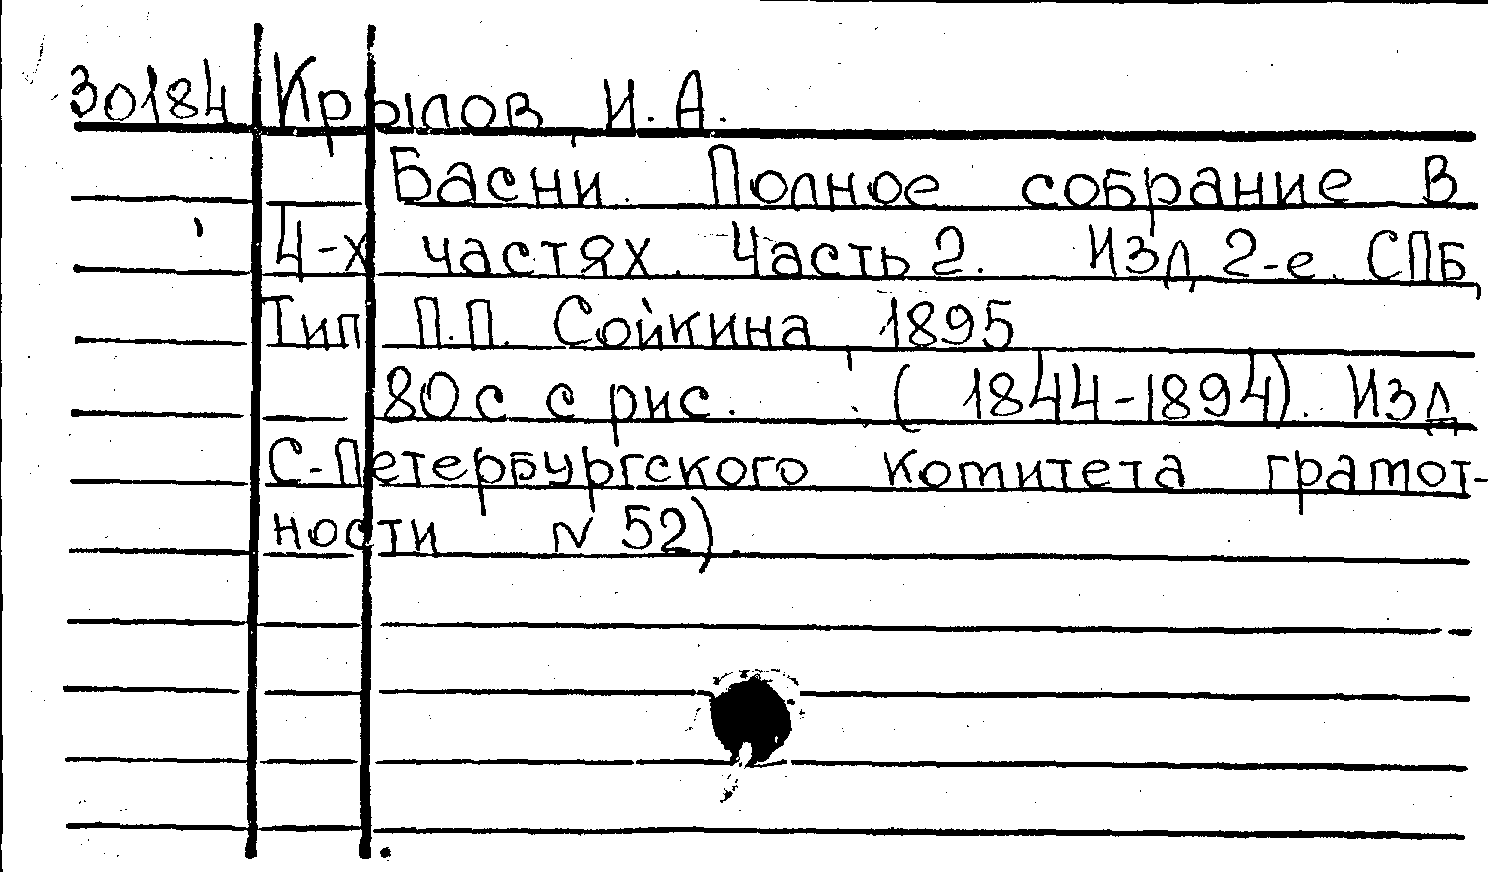 30184 Крылов, И. А.
Басни. Полное собрание в
4-х частях. Часть 2. Изд 2-е. СПБ,
Тип П.П. Сойкина, 1895
80 с с рис. (1844-1894). Изд
С-Петербургского комитета грамот-
ности N 52).